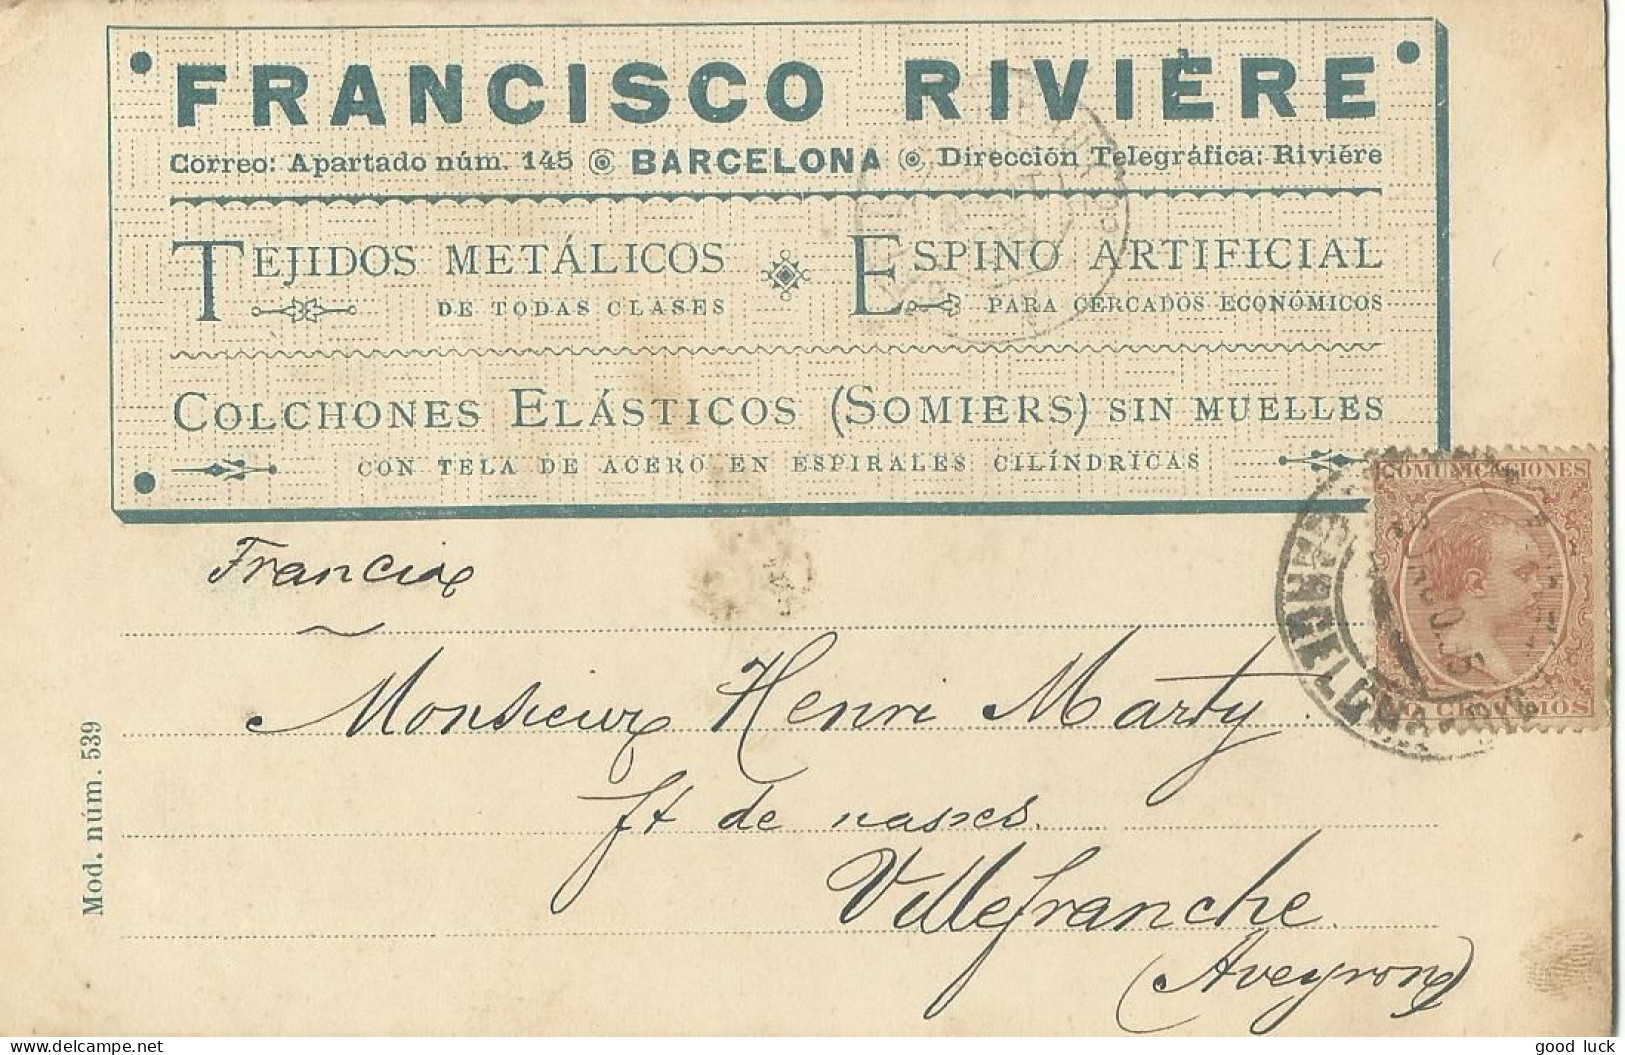 FRANCISCO RIVIÈRE
Correo: Apartado núm. 145 BARCELONA Dirección Telegráfica: Riviére
TEJIDOS METÁLICOS
DE TODAS CLASES
ESPINO ARTIFICIAL
PARA CERCADOS ECONÓMICOS
COLCHONES ELÁSTICOS (SOMIERS) SIN MUELLES
CON TELA DE ACERO EN ESPIRALES CILÍNDRICAS
COMUNICACIONES
BARCELONA
Francia
Monsieur Henri Marty
ft de vases
Villefranche
(Aveyron)
Mod. núm. 539
good luck